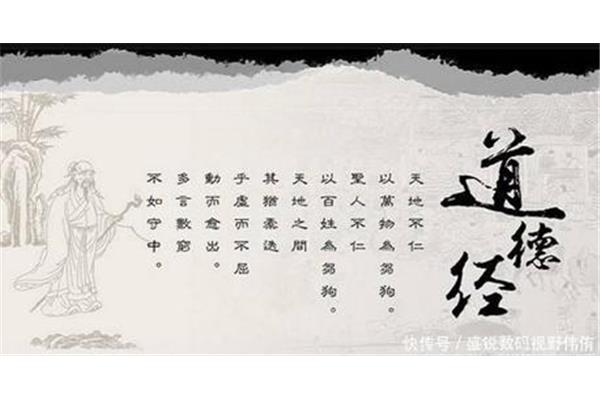 道德经
天地不仁
以萬物為芻狗。
聖人不仁
以百姓為芻狗。
天地之間
其猶橐
乎虛而不屈
動而愈出。
多言數窮
不如守中。
快传号 / 盛锐数码视野伟侑